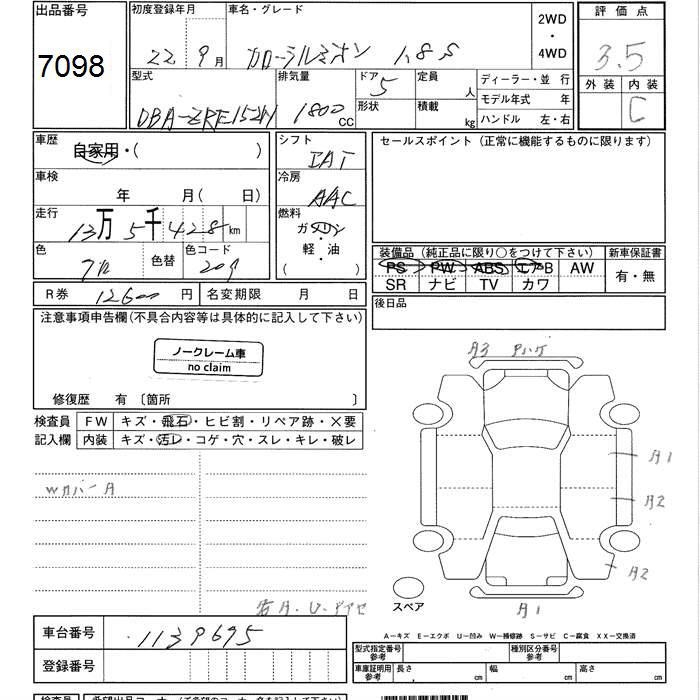 出品番号
7098
初度登録年月
22 9月
車名・グレード
カローラルミオン 1.8S
2WD
・
4WD
評価点
3.5
外装 内装
C
型式
DBA-ZRE152N
排気量
1800 CC
ドア
5
形状
定員
人
積載
kg
ディーラー・並行
モデル年式 年
ハンドル 左・右
車歴
自家用・( )
車検
年 月( 日)
走行
13万5千428km
色
色替
色コード
209
シフト
IAT
冷房
AAC
燃料
ガソリン
・
軽・油
( )
セールスポイント (正常に機能するものに限ります)
装備品 (純正品に限り○をつけて下さい)
PS PW ABS エアB AW
SR ナビ TV カワ
新車保証書
有・無
R券 12600 円
名変期限 月 日
後日品
注意事項申告欄(不具合内容等は具体的に記入して下さい)
ノークレーム車
no claim
修復歴 有 〔箇所 〕
検査員
記入欄
FW キズ・飛石・ヒビ割・リペア跡・×要
内装 キズ・汚レ・コゲ・穴・スレ・キレ・破レ
WカバーA
A3 Pハゲ
A1
A2
A2
A1
スペア
A-キズ E-エクボ U-凹み W-補修跡 S-サビ C-腐食 XX-交換済
車台番号
1139695
登録番号
型式指定番号
参考
種別区分番号
参考
車庫証明用
参考
長さ cm
幅 cm
高さ cm
検査員
希望出品コーナー(ご希望のコーナー名を記入して下さい)